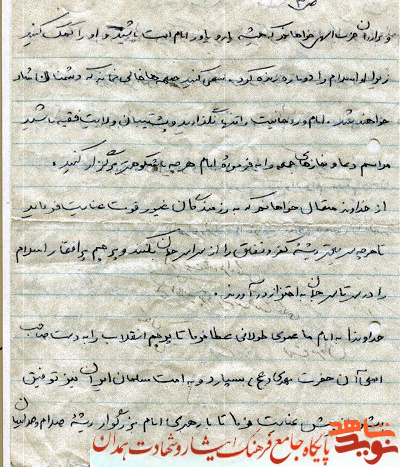 ص ۳
و برادران حزب اللهی میخواهم که همیشه یار و یاور امام امت باشید و او را کمک کنید
زیرا او اسلام را دوباره زنده کرد. سعی کنید صحنه ها خالی نماند که دشمنان شاد
خواهند شد. امام و روحانیت را تنها نگذارید و پشتیبان ولایت فقیه باشید
مراسم دعا و نمازهای جمعه را به فرموده امام هر چه با شکوهتر برگزار کنید.
از خداوند متعال میخواهم که به رزمندگان غیور قوت عنایت فرماید
تا هر چه سریعتر ریشه کفر و نفاق را از سراسر جهان بکنند و پرچم پر افتخار اسلام
را در سرتاسر جهان به اهتزاز در آورند.
خداوندا به امام ما عمری طولانی عطا فرما تا پرچم انقلاب را به دست صاحب
اصلی آن حضرت مهدی (عج) بسپارد و به امت مسلمان ایران نیز توفیق
عنایت فرما تا با رهبری امام بزرگوار ریشه صدام و صدامیان
نوید شاهد
پایگاه جامع فرهنگ ایثار و شهادت همدان